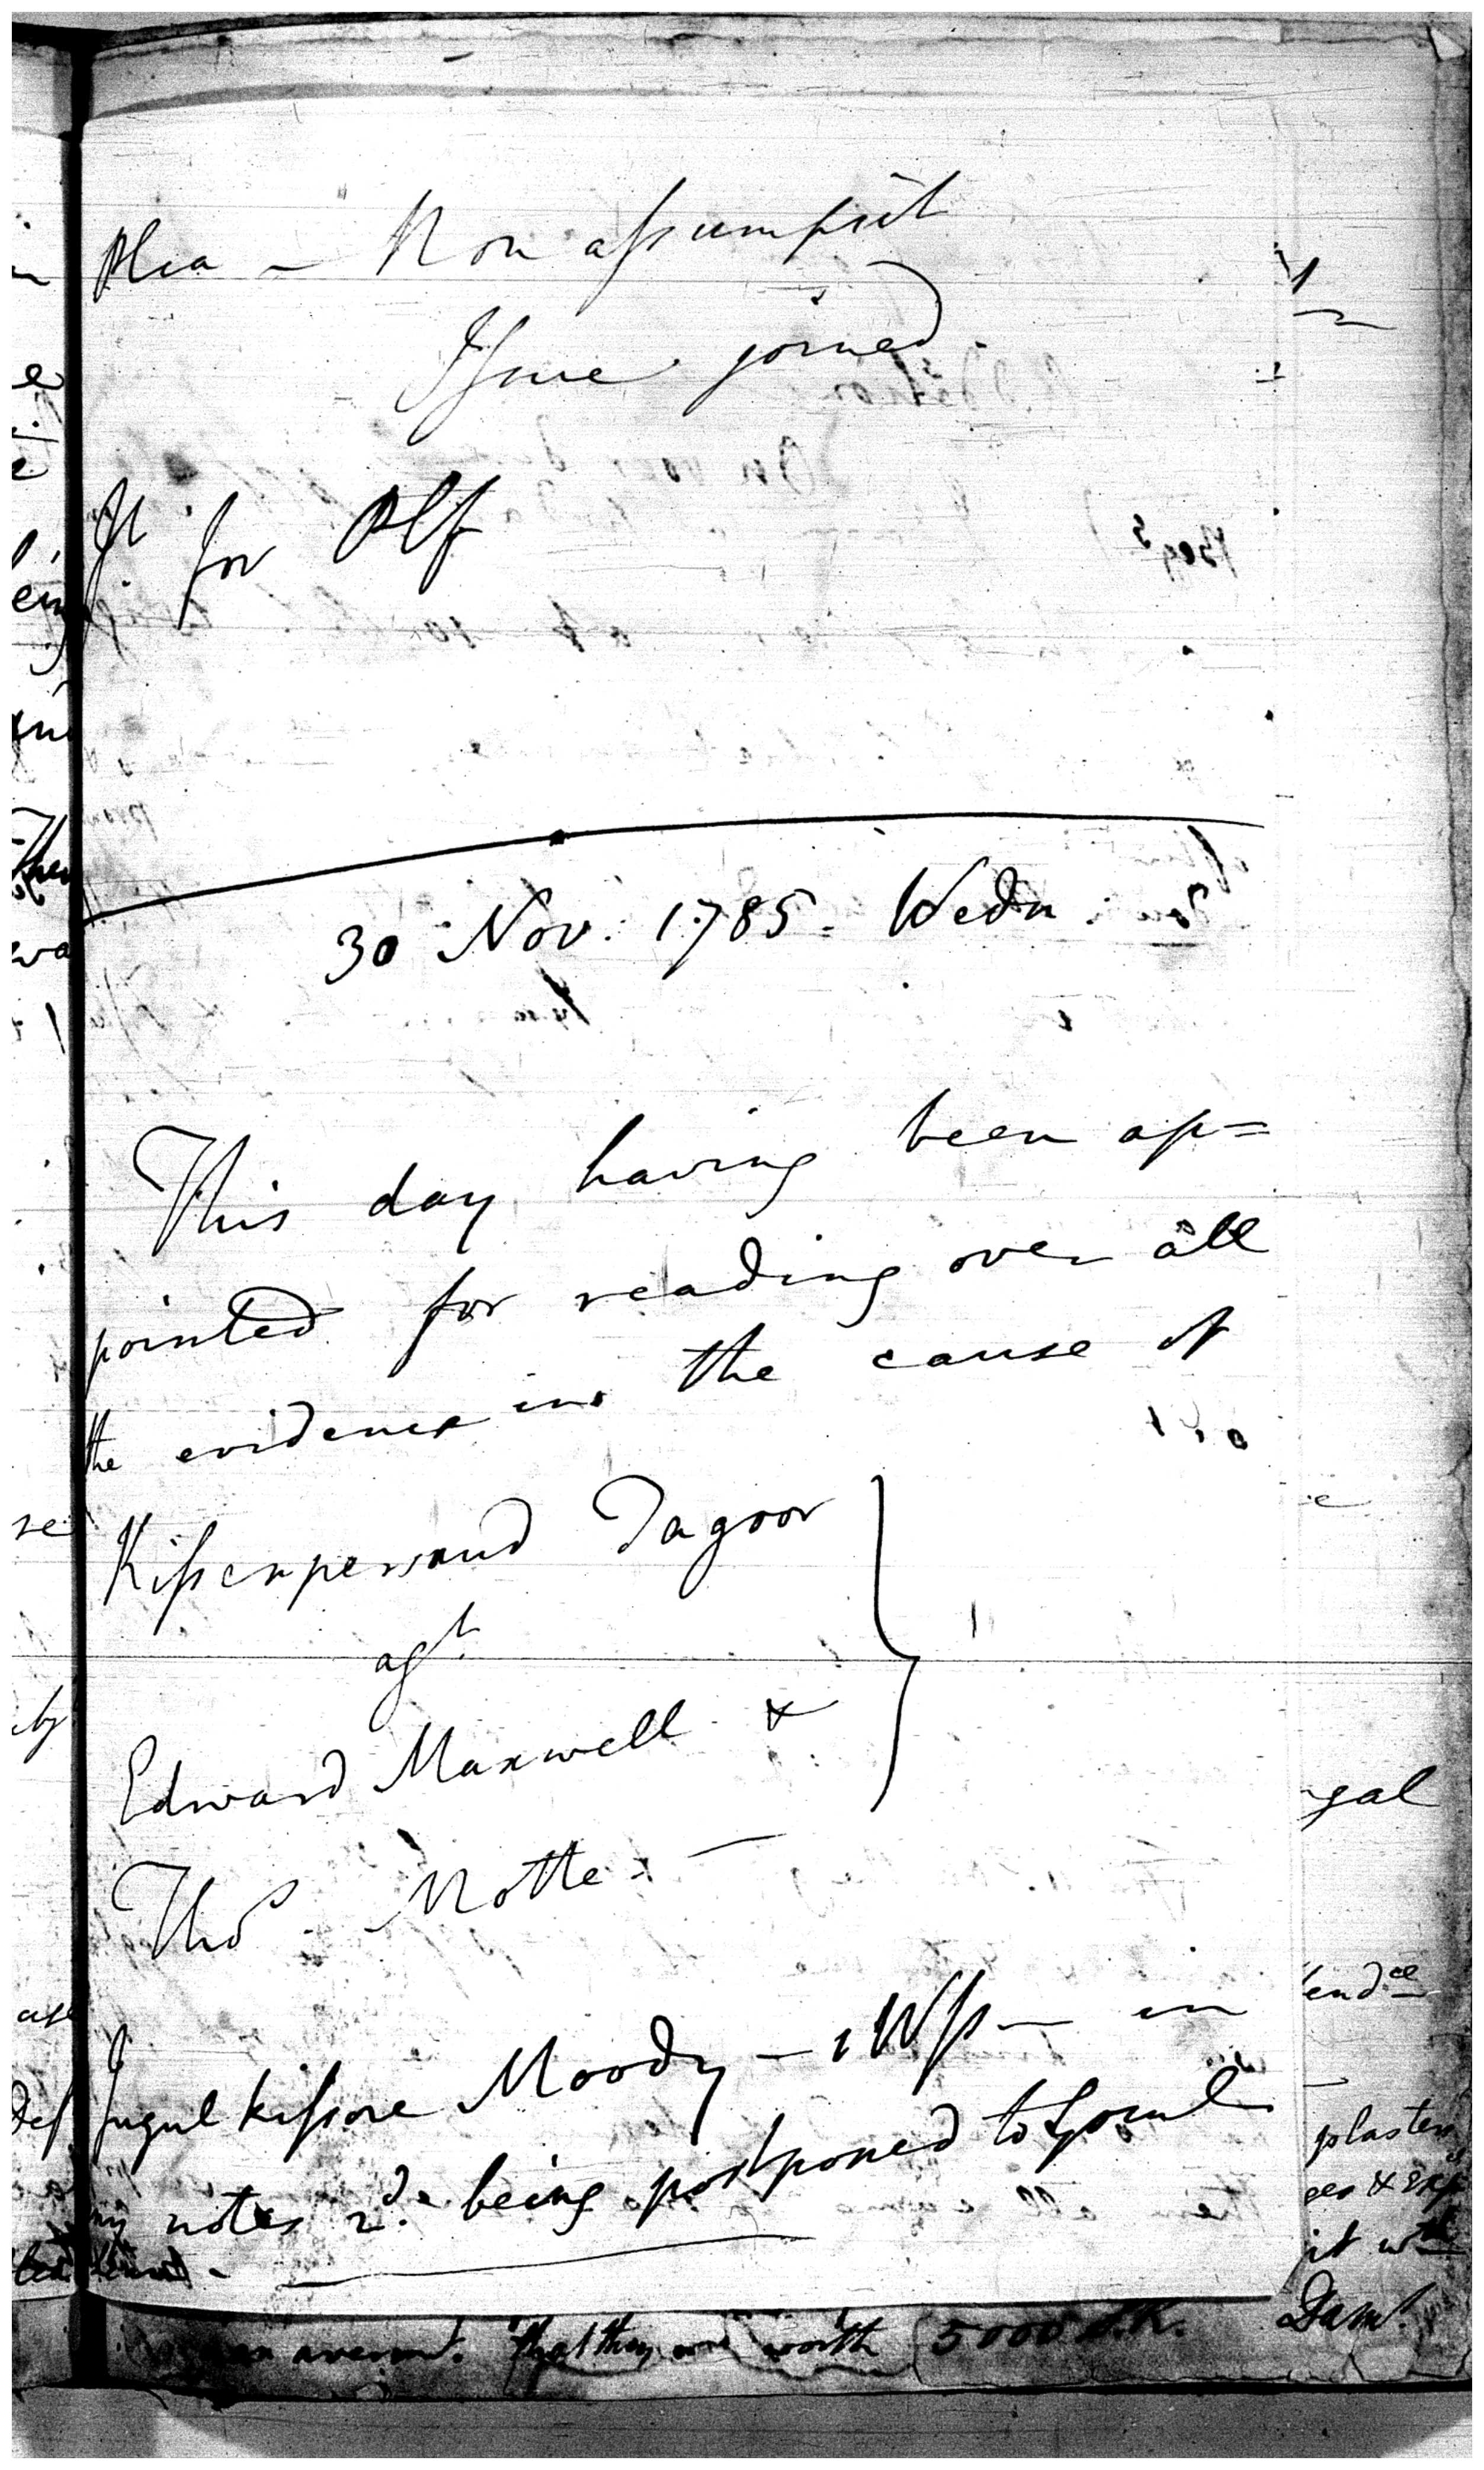 Plea - Non assumpsit
Issue joined
Jt for Plf
30 Nov: 1785. Wedn:
This day having been ap=
pointed for reading over all
the evidence in the cause of
Kissenpersaud Tagoor
agt
Edward Maxwell &
Thos. Motte -
Jugul kissore Moody - 1 Wss - in
my notes 2d. being postponed to
that they were worth 5000 S.R.
gal
endce
plaster
it wth
Dams.